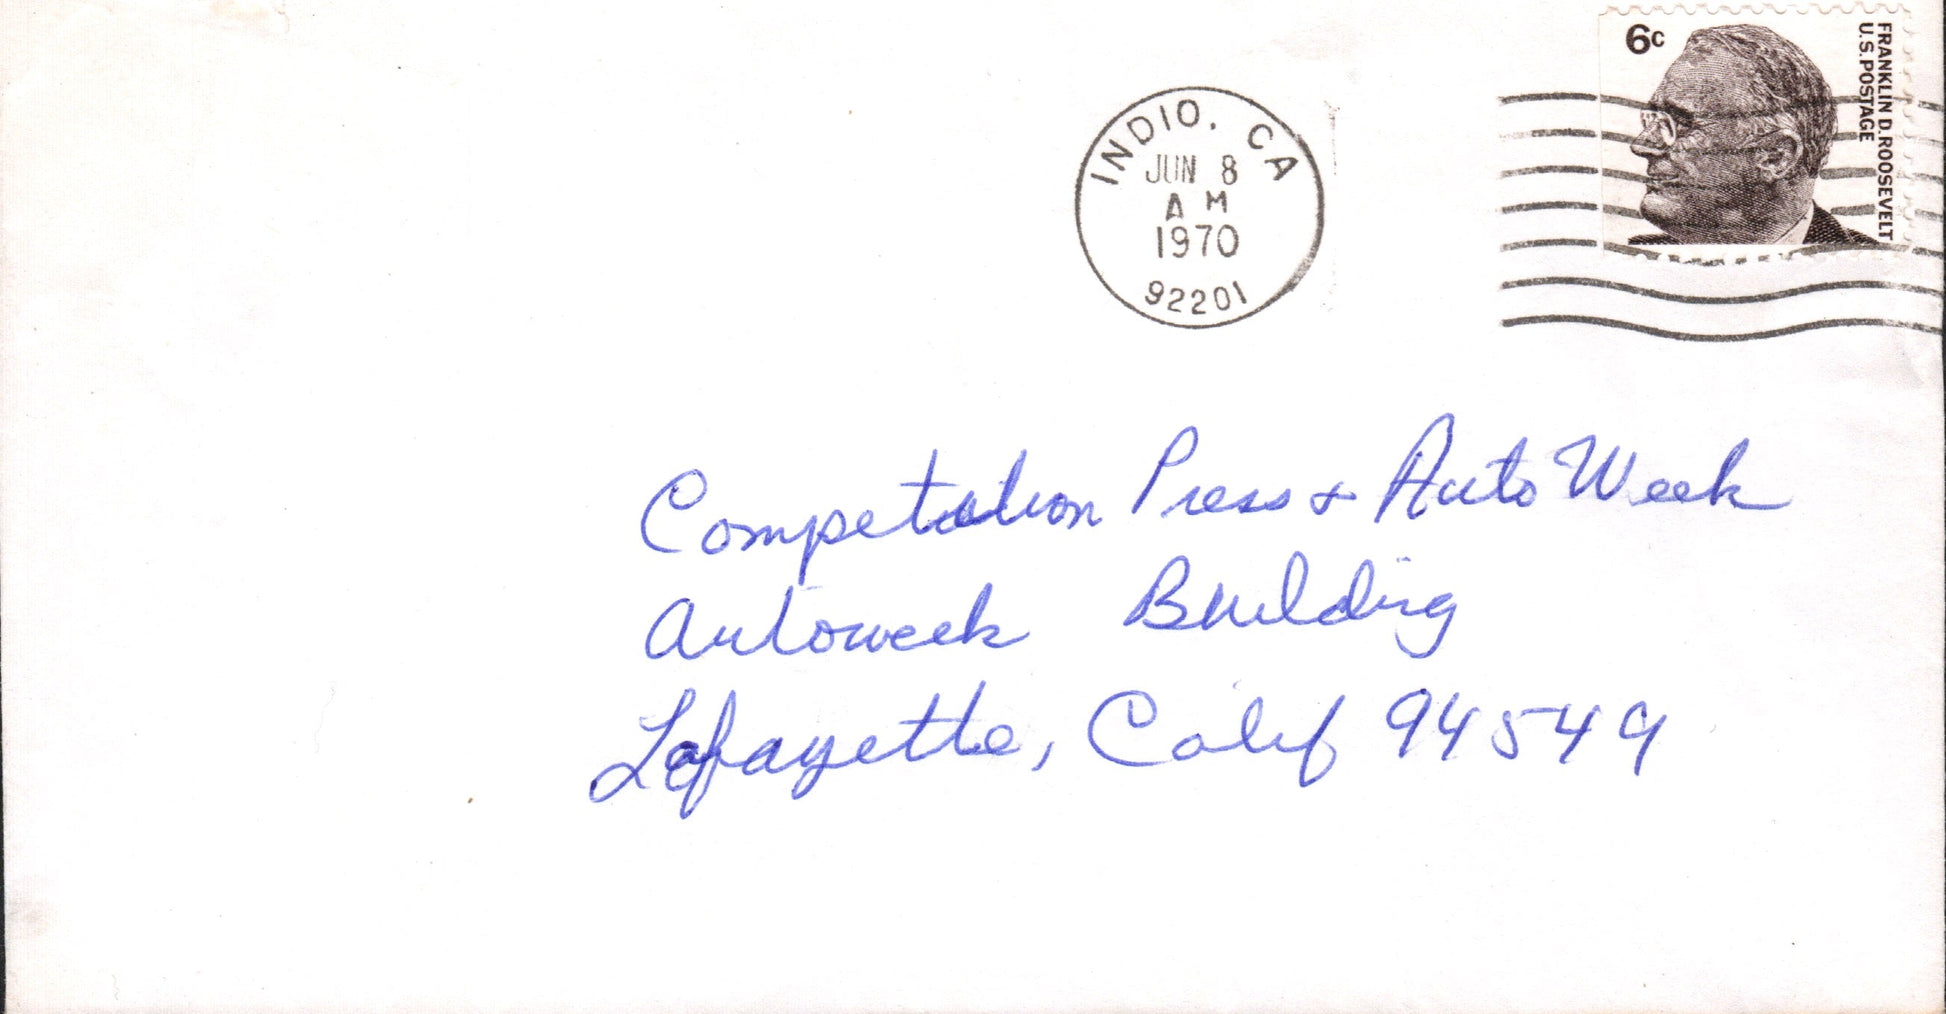 6c
FRANKLIN D. ROOSEVELT
U.S. POSTAGE
INDIO, CA
JUN 8
AM
1970
92201
Competation Press & Auto Week
Autoweek Building
Lafayette, Calif 94549